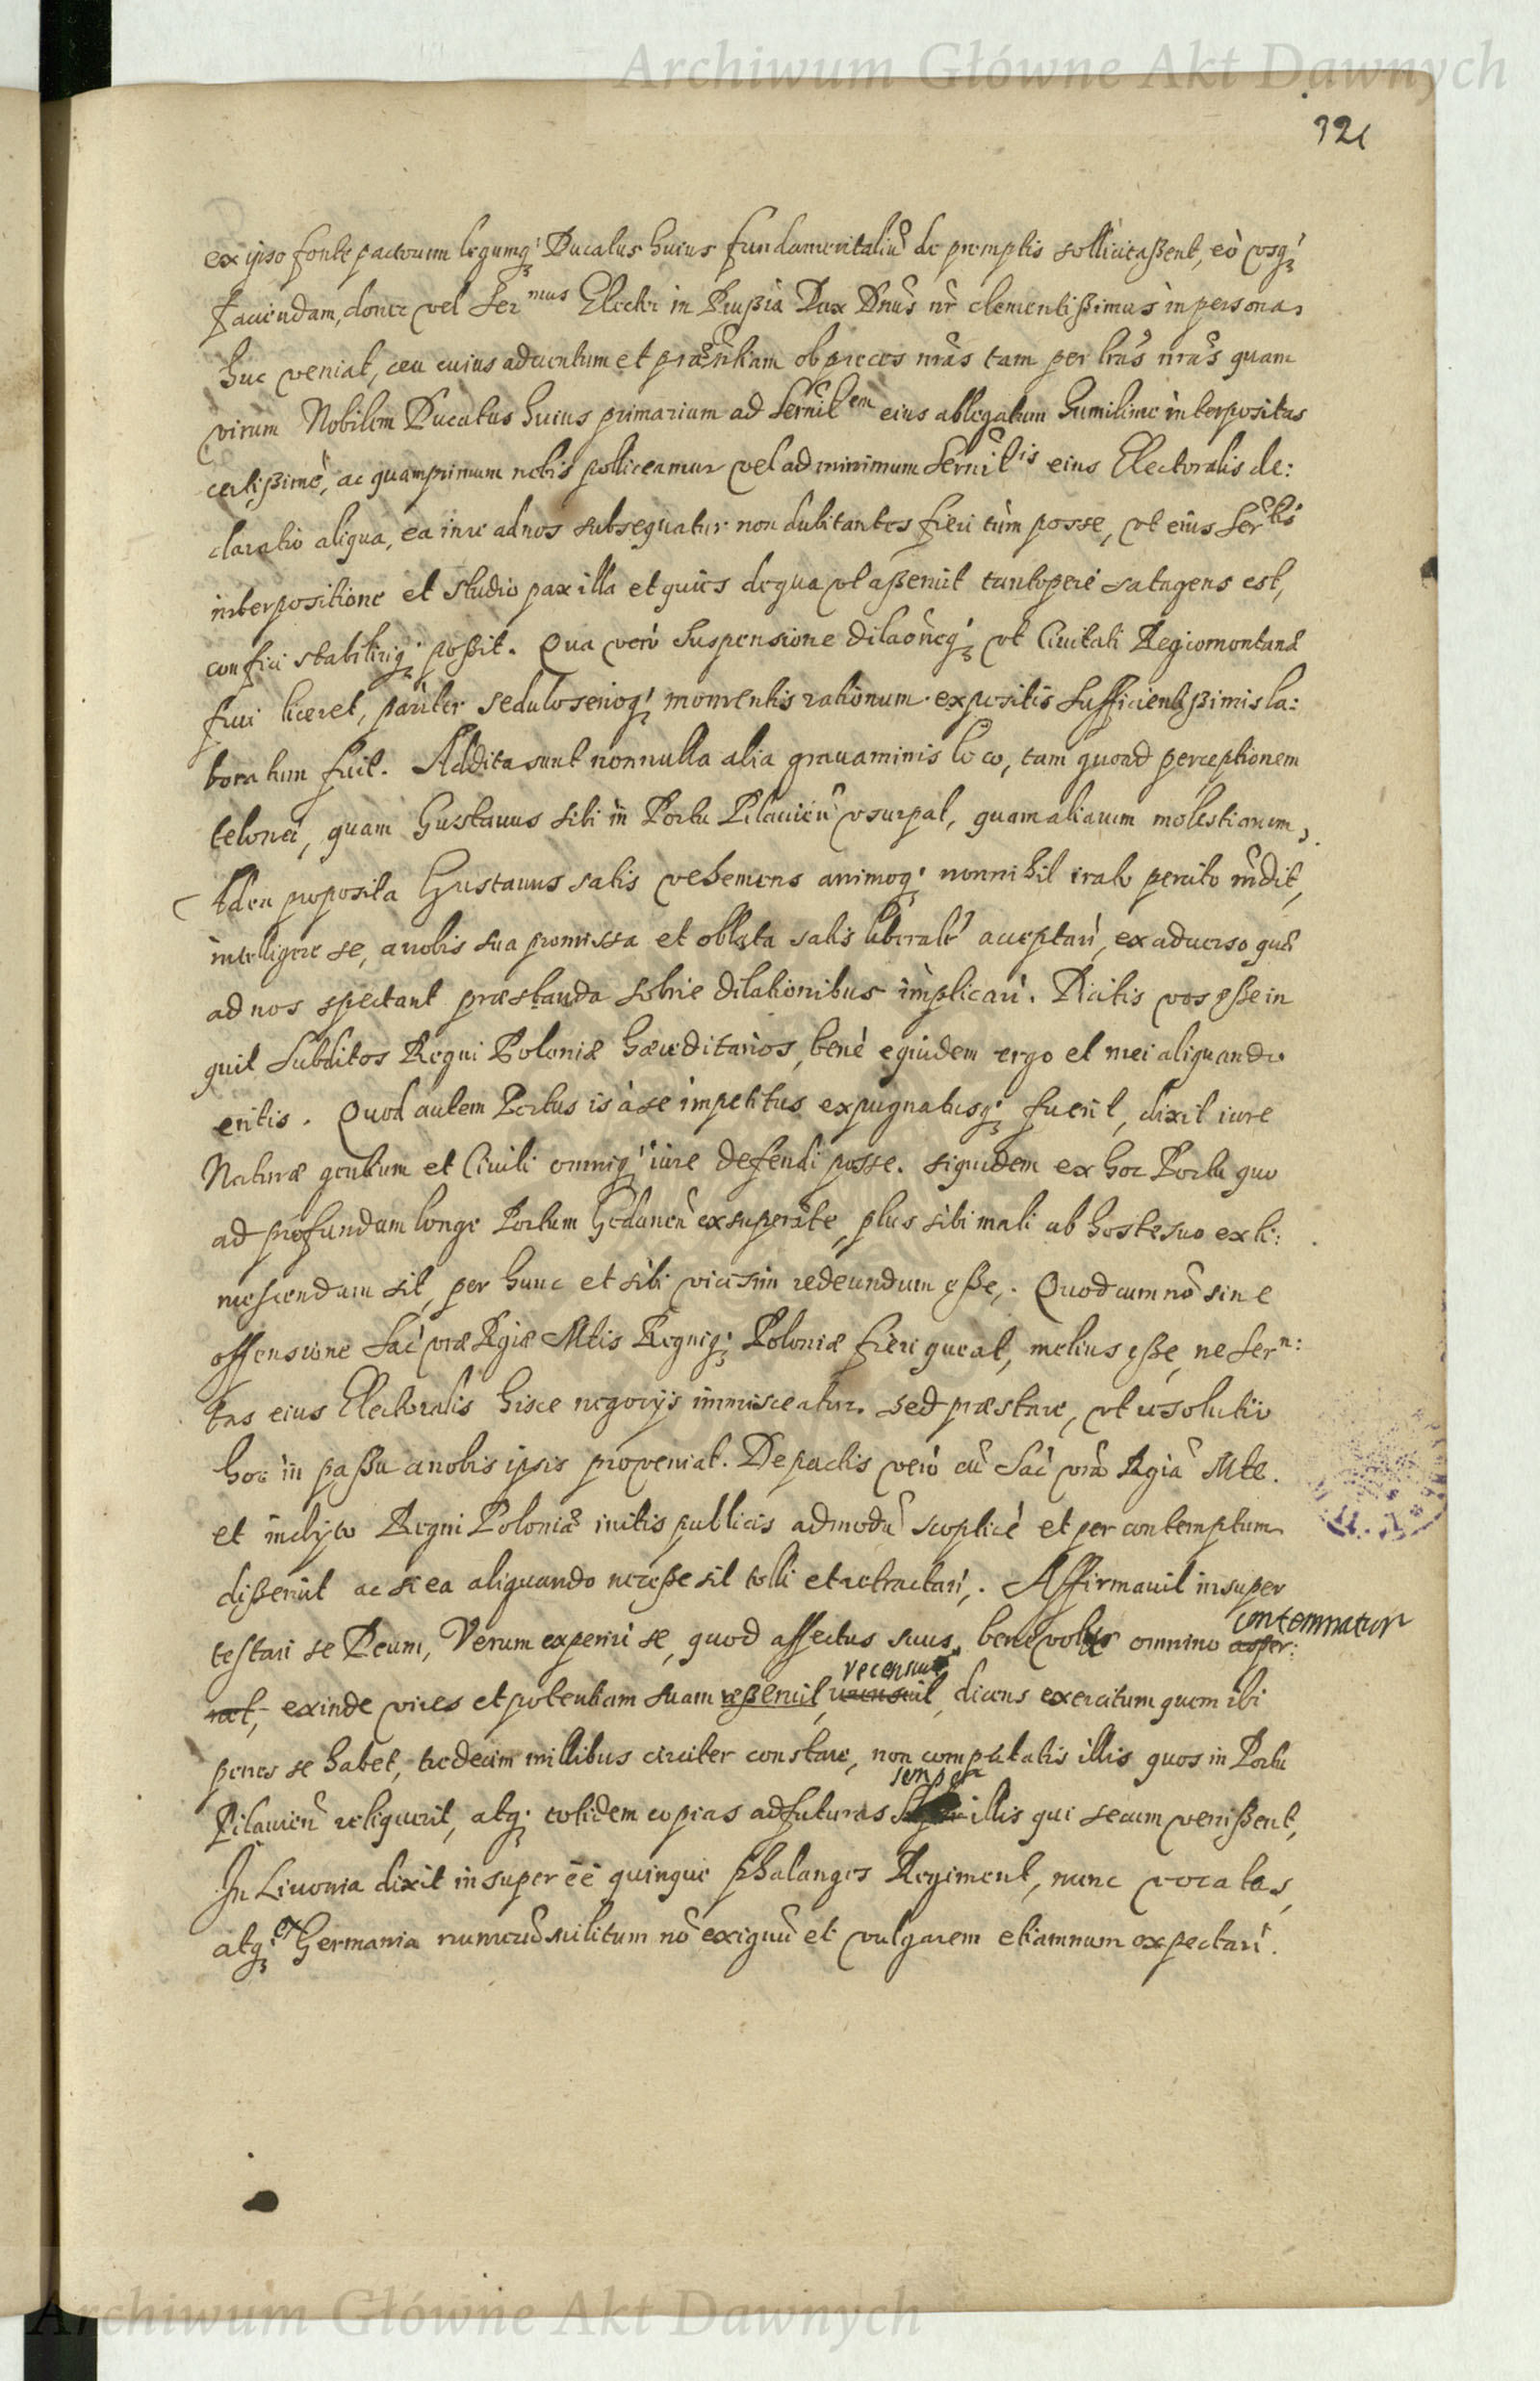 Archiwum Główne Akt Dawnych
321
ex ipso fonte pactorum legumq́; Ducatus huius fundamentaliũ depromptis sollicitaßent, eò vsq́;
faciendam, donec vel Sermus Elector in Prußia Dux Dnũs nr̃ clementißimus in persona
huc veniat, ceu cuius aduentum et præsẽntiam ob preces nrãs tam per lrãs nrãs quam
virum Nobilem Ducatus huius primarium ad Sernĩtem eius ablegatum humilime interpositas
certißimè, ac quamprimum nobis polliceamur vel ad minimum Sernĩtis eius Electoralis de:
claratio aliqua, ea in re ad nos subsequatur non dubitantes fieri tùm posse, vt eius Sertĩs
interpositione et studio pax illa et quies de qua vt aßeruit tantoperè satagens est,
confici stabiliriq́; poßit. Qua verò suspensione dilaõneq́; vt Ciuitati Regiomontanæ
frui liceret, pariter sedulo serioq́; momentis rationum expositis sufficientißimis la:
boratum fuit. Addita sunt nonnulla alia grauaminis loco, tam quoad perceptionem
telonei, quam Gustauus sibi in Portu Pilauieñ vsurpat, quam aliarum molestiarum,
Ad ea proposita Gustauus satis vehemens animoq́; nonnihil irato percito rñdit,
intelligere se, a nobis sua promissa et oblata satis liberalr̃ acceptari, ex aduerso quæ
ad nos spectant præstanda solitis dilationibus implicari. Dicitis vos eße in
quit subditos Regni Poloniæ hæreditarios, benè eiusdem ergo et mei aliquando
eritis. Quod autem Portus is à se impetitus expugnatusq́; fuerit, dixit iure
Naturæ gentium et Ciuili omniq́; iure defendi posse. siquidem ex hoc Portu quo
ad profundum longe Portum Gedaneñ exsuperante, plus sibi mali ab hoste suo exti:
mescendum sit, per hunc et sibi vicissim redeundum eße,. Quod cum nõ sine
offensione Sac̀ vræ Rgiæ Mtis Regniq́; Poloniæ fieri queat, melius eße, ne Sern:
tas eius Electoralis hisce negocijs immisceatur. sed præstare, vt resolutio
hoc in paßu a nobis ipsis proveniat. De pactis verò cũ Sac̀ vrã Rgiã Mte.
et inclyto Regni Poloniæ initis publicis admodũ scopticè et per contemptum
dißeruit ac si ea aliquando neceße sit tolli et retractari,. Affirmauit insuper
testari se Deum, Verum experiri se, quod affectus suus, benevolus omnino asper: contemnatur
nat, exinde vires et potentiam suam reßeruit, recensuit, recensuit, dicens exercitum quem ibi
penes se habet, tredecim millibus circiter constare, non computatis illis quos in Portu
Pilauieñ reliquerit, atq́; totidem copias adfuturas semper illis qui secum venißent,
In Liuonia dixit insuper ẽẽ quinque phalanges Regiment, nunc vocatas,
atq́; ex Germania numerũ militum nõ exiguũ et vulgarem etiamnum expectari.
Archiwum Główne Akt Dawnych